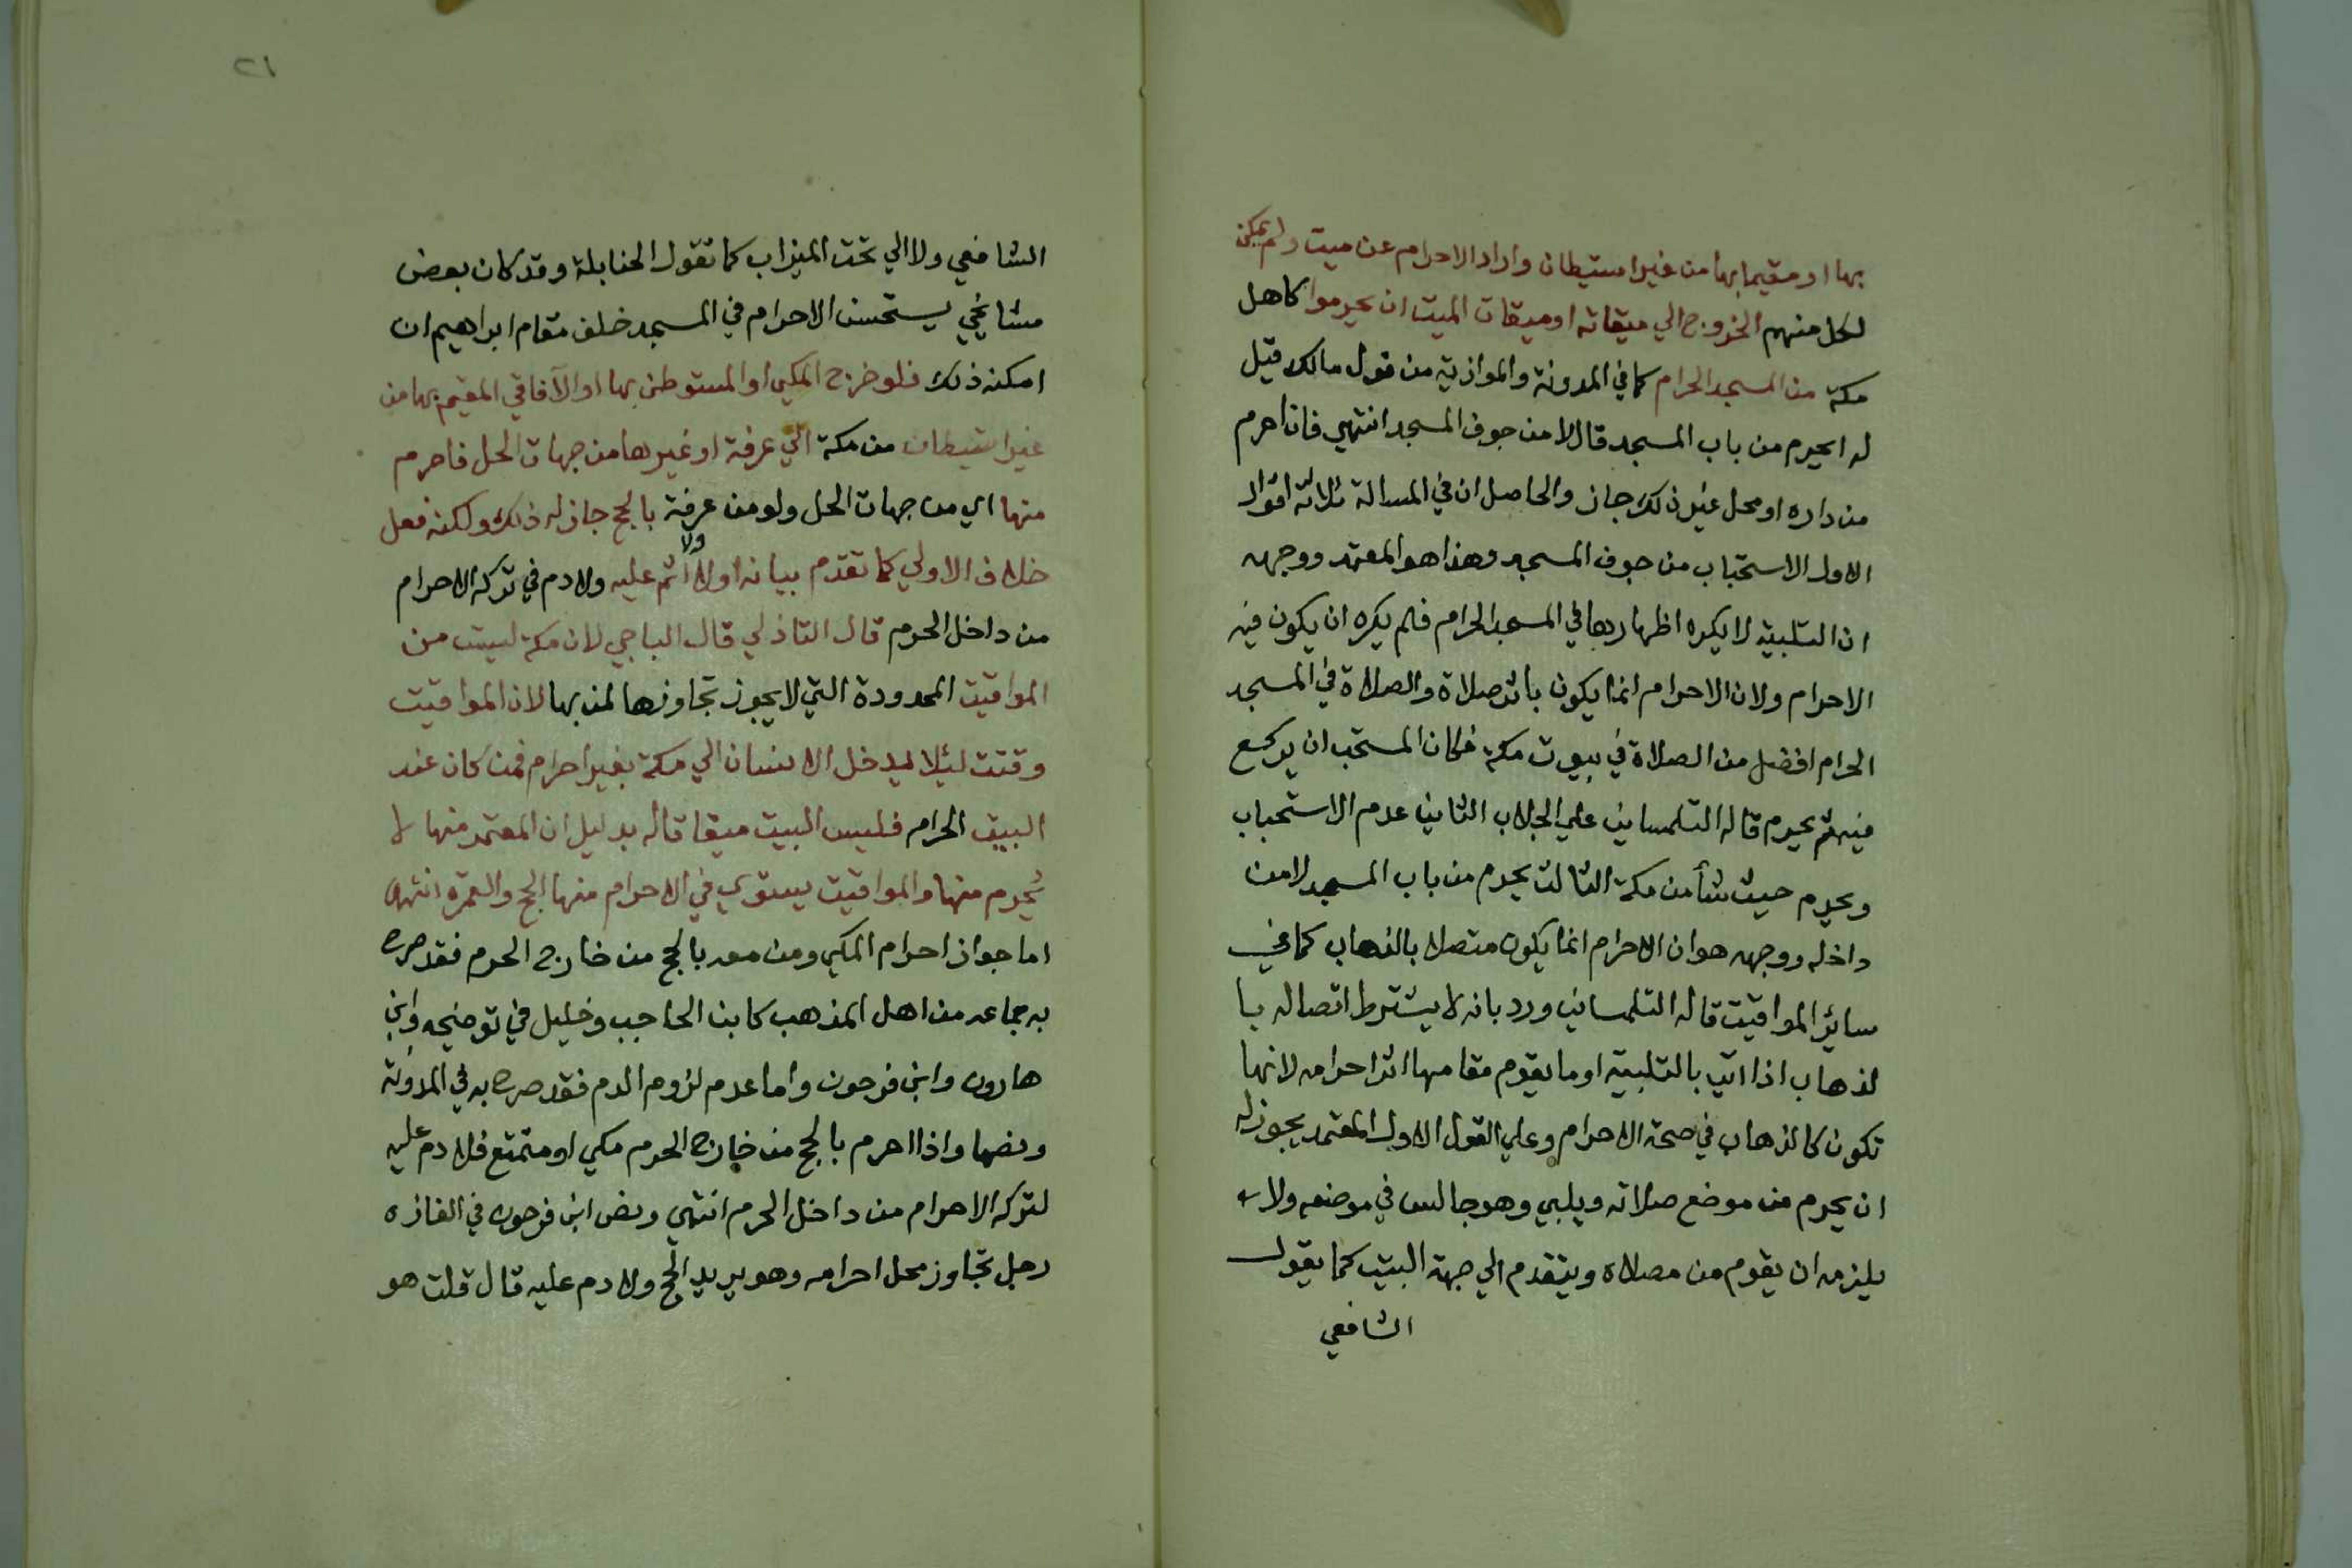 بها او مقيما بها من غير استيطان واراد الاحرام عن ميت ولم يمكن
لكل منهم الخروج الي ميقاته او ميقات الميت ان يحرموا كاهل
مكة من المسجد الحرام كما في المدونة والموازية من قول مالك قيل
له ايحرم من باب المسجد قال لا من جوف المسجد انتهي فان احرم
من داره او محل غير ذلك جاز والحاصل ان في المسالة ثلاثة اقوال
الاول الاستحباب من جوف المسجد وهذا هو المعتمد ووجهه
ان التلبية لا يكره اظهارها في المسجد الحرام فلم يكره ان يكون فيه
الاحرام ولان الاحرام انما يكون باثر صلاة والصلاة في المسجد
الحرام افضل من الصلاة في بيوت مكة فكان المستحب ان يركع
فيه ثم يحرم قاله التلمساني علي الجلاب الثاني عدم الاستحباب
ويحرم حيث شأ من مكة الثالث يحرم من باب المسجد لا من
داخله ووجهه هو ان الاحرام انما يكون متصلا بالذهاب كما في
سائر المواقيت قاله التلمساني ورد بانه لا يشترط اتصاله با
لذهاب اذا اتي بالتلبية او ما يقوم مقامها اثر احرامه لانها
تكون كالذهاب في صحة الاحرام وعلي القول الاول المعتمد يجوز له
ان يحرم من موضع صلاته ويلبي وهو جالس في موضعه ولا
يلزمه ان يقوم من مصلاه ويتقدم الي جهة البيت كما يقول
الشافعي
٢١
الشافعي ولا الي تحت الميزاب كما تقول الحنابلة وقد كان بعض
مشايخي يستحسن الاحرام في المسجد خلف مقام ابراهيم ان
امكنه ذلك فلو خرج المكي او المستوطن بها او الآفاقي المقيم بها من
غير استيطان من مكة الي عرفة او غيرها من جهات الحل فاحرم
منها اي من جهات الحل ولو من عرفة بالحج جاز له ذلك ولكنه فعل
خلاف الاولي كما تقدم بيانه اولا ولا اثم عليه ولا دم في تركه الاحرام
من داخل الحرم قال التاذلي قال الباجي لان مكة ليست من
المواقيت المحدودة التي لا يجوز تجاوزها لمن بها لان المواقيت
وقتت لئلا يدخل الانسان الي مكة بغير احرام فمن كان عند
البيت الحرام فليس البيت ميقاتا له بدليل ان المعتمر منها لا
يحرم منها والمواقيت يستوي في الاحرام منها الحج والعمرة انتهى
اما جواز احرام المكي ومن معه بالحج من خارج الحرم فقد صرح
به جماعه من اهل المذهب كابن الحاجب وخليل في توضيحه وابن
هارون وابن فرحون واما عدم لزوم الدم فقد صرح به في المدونة
ونصها واذا احرم بالحج من خارج الحرم مكي او متمتع فلا دم عليه
لتركه الاحرام من داخل الحرم انتهي ونص ابن فرحون في الغازه
رجل تجاوز محل احرامه وهو يريد الحج ولا دم عليه قال قلت هو